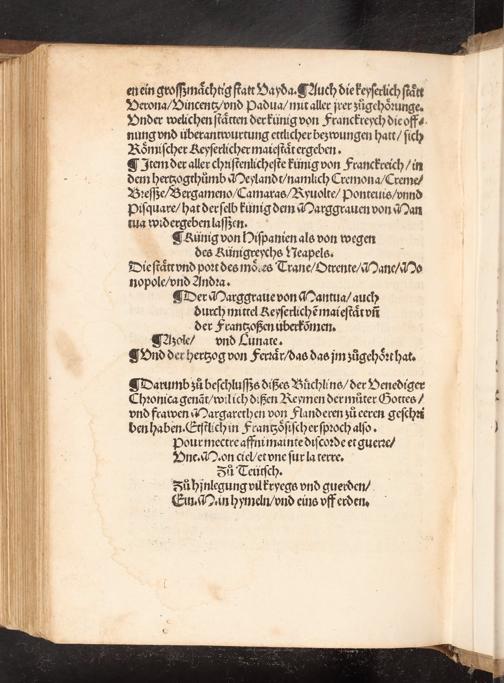 en ein großzmächtig statt Vayda. ¶ Auch die keyserlich stätt
Verona/ Vincentz/ vnd Padua/ mit aller jrer zůgehörunge.
Vnder welichen stätten der künig von Franckreych die off-
nung vnd überantwurtung ettlicher bezwungen hatt/ sich
Römischer Keyserlicher maiestät ergeben.
¶ Item der aller christenlicheste künig von Franckreich/ in
dem hertzogthümb Meylandt/ namlich Cremona/ Creme/
Bresße/ Bergameno/ Camaras/ Ryuolte/ Ponteuis/ vnnd
Pisquare/ hat derselb künig dem Marggrauen von Man
tua widergeben lassßen.
¶ Künig von Hispanien als von wegen
des Künigreychs Neapels.
Die stätt vnd port des mores Trane/ Otrente/ Mane/ Mo
nopole/ vnd Andra.
¶ Der Marggraue von Mantua/ auch
durch mittel Keyserlichē maiestät vñ
der Frantzoßen überkōmen.
¶ Azole/ vnd Lunate.
¶ Vnd der hertzog von Ferrär/ das das jm zůgehört hat.
¶ Darumb zů beschlusßs dißes Büchlins/ der Venediger
Chronica genāt/ wil ich dißen Reymen der můter Gottes/
vnd frawen Margarethen von Flanderen zů eren geschri
ben haben. Erstlich in Frantzösischer sproch also.
Pour mectre affni mainte discorde et guerre/
Vne .M. on ciel/ et vne sur la terre.
Zů Teütsch.
Zů hjnlegung vil kryegs vnd guerden/
Ein .M. in hymeln/ vnd eins vff erden.